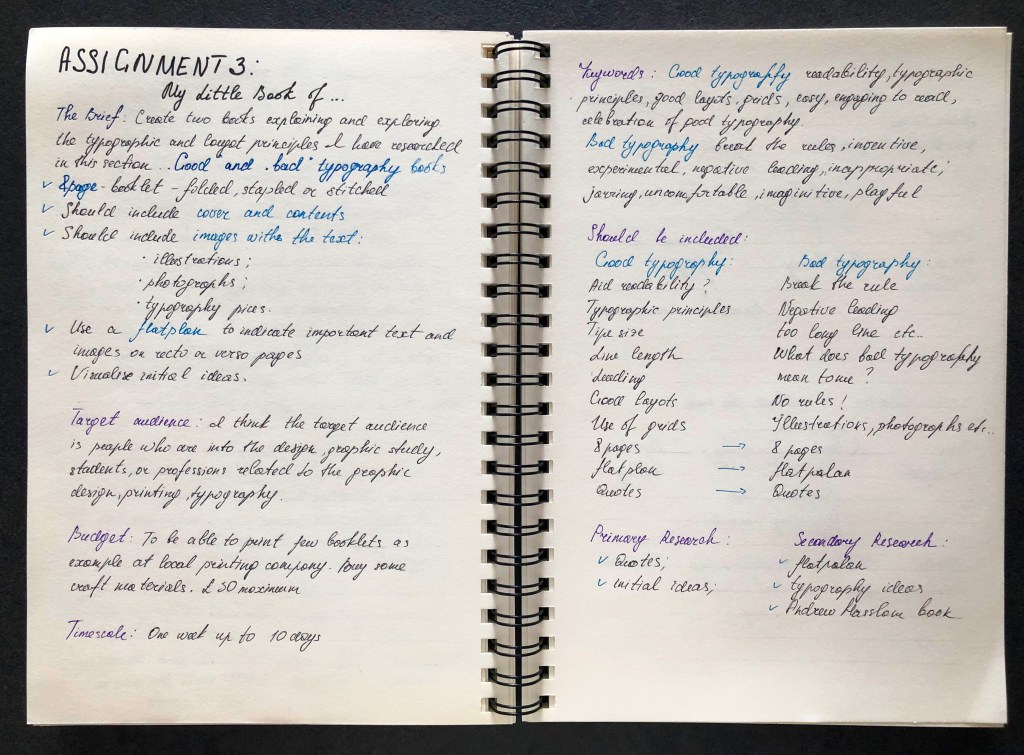 ASSIGNMENT 3:
My Little Book of ...
The Brief: Create two books explaining and exploring
the typographic and layout principles I have researched
in this section... Good "and" bad" typography books
8page - booklet - folded, stapled or stitched
Should include cover and contents
Should include images withe the text:
· illustrations;
· photographs;
· typography pices.
Use a flatplan to indicate important text and
images on recto or verso pages
Visualise initial ideas.
Target audience: I think the target audience
is people who are into the design, graphic study,
students, or professions related to the graphic
design, printing, typography.
Budget: To be able to print few booklets as
example at local printing company. Buy some
craft materials. £ 50 maximum
Timescale: One week up to 10 days
Keywords: Good typography readability, typographic
principles, good layots, grids, easy, engaging to read,
celebration of good typography.
Bad typography break the rules, inventive,
experimental, negative leading, inappropriate,
jarring, uncomfortable, imaginitive, playful
Should be included:
Good typography: Bad typography:
Aid readability? Break the rule
Typographic principles Negative leading
Type size too long line etc..
Line length What does bad typography
Leading mean to me?
Good layots No rules!
Use of grids Illustrations, photographs etc...
8 pages → 8 pages
flatplan → flatpalan
Quotes → Quotes
Primary Research: Secondary Research:
Quotes; flatpalan
initial ideas; typography ideas
Andrew Hasslam book